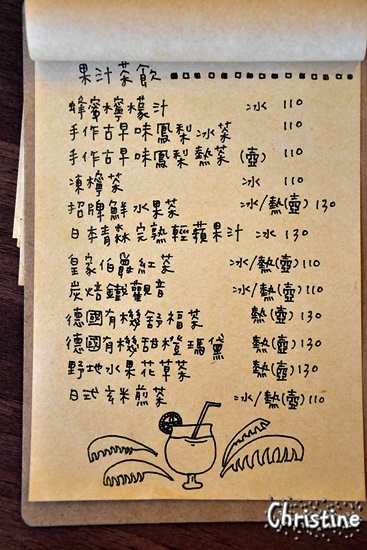 果汁茶飲
蜂蜜檸檬汁 冰 110
手作古早味鳳梨冰茶 110
手作古早味鳳梨熱茶(壺) 110
凍檸茶 冰 110
招牌鮮水果茶 冰/熱(壺) 130
日本青森完熟輕蘋果汁 冰 130
皇家伯爵紅茶 冰/熱(壺) 110
炭焙鐵觀音 冰/熱(壺) 110
德國有機舒福茶 熱(壺) 130
德國有機甜橙瑪黛 熱(壺) 130
野地水果花草茶 熱(壺) 130
日式玄米煎茶 冰/熱(壺) 110
Christine